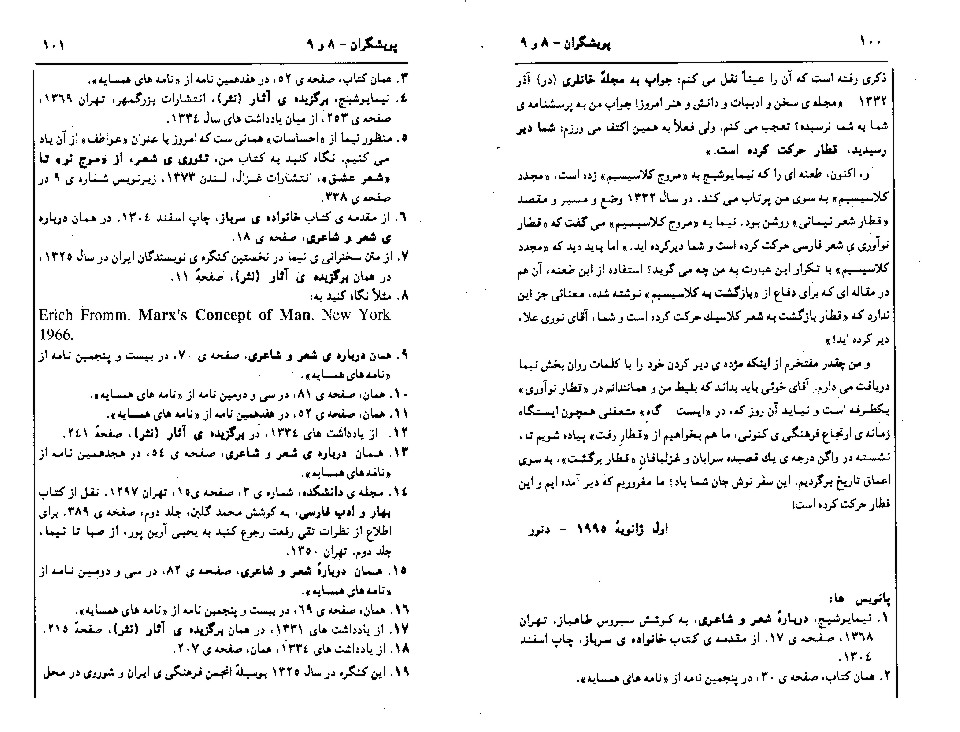 ۱۰۰
پویشگران - ۸ و ۹
ذکری رفته است که آن را عیناً نقل می کنم: جواب به مجلهٔ خانلری (در) آذر
۱۳۳۲ «مجله ی سخن و ادبیات و دانش و هنر امروز! جواب من به پرسشنامه ی
شما به شما نرسیده؟ تعجب می کنم. ولی فعلاً به همین اکتفا می ورزم: شما دیر
رسیدید، قطار حرکت کرده است.»
و، اکنون، طعنه ای را که نیمایوشیج به «مروج کلاسیسیم» زده است، «مجدد
کلاسیسیم» به سوی من پرتاب می کند. در سال ۱۳۳۲ وضع و مسیر و مقصد
«قطار شعر نیمائی» روشن بود. نیما به «مروج کلاسیسیم» می گفت که «قطار
نوآوری ی شعر فارسی حرکت کرده است و شما دیرکرده اید.» اما باید دید که «مجدد
کلاسیسیم» با تکرار این عبارت به من چه می گوید؟ استفاده از این طعنه، آن هم
در مقاله ای که برای دفاع از «بازگشت به کلاسیسیم» نوشته شده، معنائی جز این
ندارد که «قطار بازگشت به شعر کلاسیك حرکت کرده است و شما، آقای نوری علا،
دیر کرده اید!»
و من چقدر مفتخرم از اینکه مژده ی دیر کردن خود را با کلمات روان بخش نیما
دریافت می دارم. آقای خوئی باید بداند که بلیط من و همانندانم در «قطار نوآوری»
یکطرفه است و نیاید آن روز که، در «ایست گاه» متعفنی همچون ایستگاه
زمانه ی ارتجاع فرهنگی ی کنونی، ما هم بخواهیم از «قطار رفت» پیاده شویم تا،
نشسته در واگن درجه ی یك قصیده سرایان و غزلبافانِ «قطار برگشت»، به سوی
اعماق تاریخ برگردیم. این سفر نوش جان شما باد؛ ما مغروریم که دیر آمده ایم و این
قطار حرکت کرده است!
اول ژانویهٔ ۱۹۹۵ - دنور
پانویس ها:
۱. نیمایوشیج، دربارهٔ شعر و شاعری، به کوشش سیروس طاهباز، تهران
۱۳۶۸، صفحه ی ۱۷. از مقدمه ی کتاب خانواده ی سرباز، چاپ اسفند
۱۳۰٤.
۲. همان کتاب، صفحه ی ۳۰، در پنجمین نامه از «نامه های همسایه».
پویشگران - ۸ و ۹
۱۰۱
۳. همان کتاب، صفحه ی ۵۲، در هفدهمین نامه از «نامه های همسایه».
٤. نیمایوشیج، برگزیده ی آثار (نثر)، انتشارات بزرگمهر، تهران ۱۳۶۹،
صفحه ی ۲۵۳، از میان یادداشت های سال ۱۳۳٤.
۵. منظور نیما از «احساسات» همانی ست که امروز با عنوان «عواطف» از آن یاد
می کنیم. نگاه کنید به کتاب من، تئوری ی شعر، از «موج نو» تا
«شعر عشق»، انتشارات غزال، لندن ۱۳۷۳، زیرنویس شماره ی ۹ در
صفحه ی ۳۳۸.
۶. از مقدمه ی کتاب خانواده ی سرباز، چاپ اسفند ۱۳۰٤. در همان درباره
ی شعر و شاعری، صفحه ی ۱۸.
۷. از متن سخنرانی ی نیما در نخستین کنگره ی نویسندگان ایران در سال ۱۳۲۵،
در همان برگزیده ی آثار (نثر)، صفحهٔ ۱۱.
۸. مثلاً نگاه کنید به:
Erich Fromm. Marx's Concept of Man. New York
1966.
۹. همان درباره ی شعر و شاعری، صفحه ی ۷۰، در بیست و پنجمین نامه از
«نامه های همسایه».
۱۰. همان، صفحه ی ۸۱، در سی و دومین نامه از «نامه های همسایه».
۱۱. همان، صفحه ی ۵۲، در هفدهمین نامه از «نامه های همسایه».
۱۲. از یادداشت های ۱۳۳٤، در برگزیده ی آثار (نثر)، صفحهٔ ۲٤۱.
۱۳. همان درباره ی شعر و شاعری، صفحه ی ۵٤، در هجدهمین نامه از
«نامه های همسایه».
۱٤. مجله ی دانشکده، شماره ی ۳، صفحه ی ۱۵، تهران ۱۲۹۷. نقل از کتاب
بهار و ادب فارسی، به کوشش محمد گلبن، جلد دوم، صفحه ی ۳۸۹. برای
اطلاع از نظرات تقی رفعت رجوع کنید به یحیی آرین پور، از صبا تا نیما،
جلد دوم. تهران ۱۳۵۰.
۱۵. همان دربارهٔ شعر و شاعری، صفحه ی ۸۲، در سی و دومین نامه از
«نامه های همسایه».
۱۶. همان، صفحه ی ۶۹، در بیست و پنجمین نامه از «نامه های همسایه».
۱۷. از یادداشت های ۱۳۳۱، در همان برگزیده ی آثار (نثر)، صفحهٔ ۲۱۵.
۱۸. از یادداشت های ۱۳۳٤، همان، صفحه ی ۲۰۷.
۱۹. این کنگره در سال ۱۳۲۵ بوسیلهٔ انجمن فرهنگی ی ایران و شوروی در محل